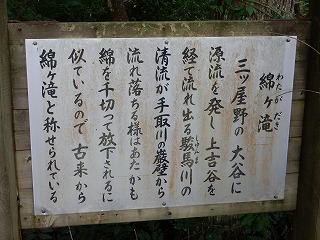 わたがだき
綿ヶ滝
三ッ屋野の大谷に
源流を発し上吉谷を
経て流れ出る駿馬川の
清流が手取川の巌壁から
流れ落ちる様はあたかも
綿を千切って放下されるに
似ているので古来から
綿ヶ滝と称せられている